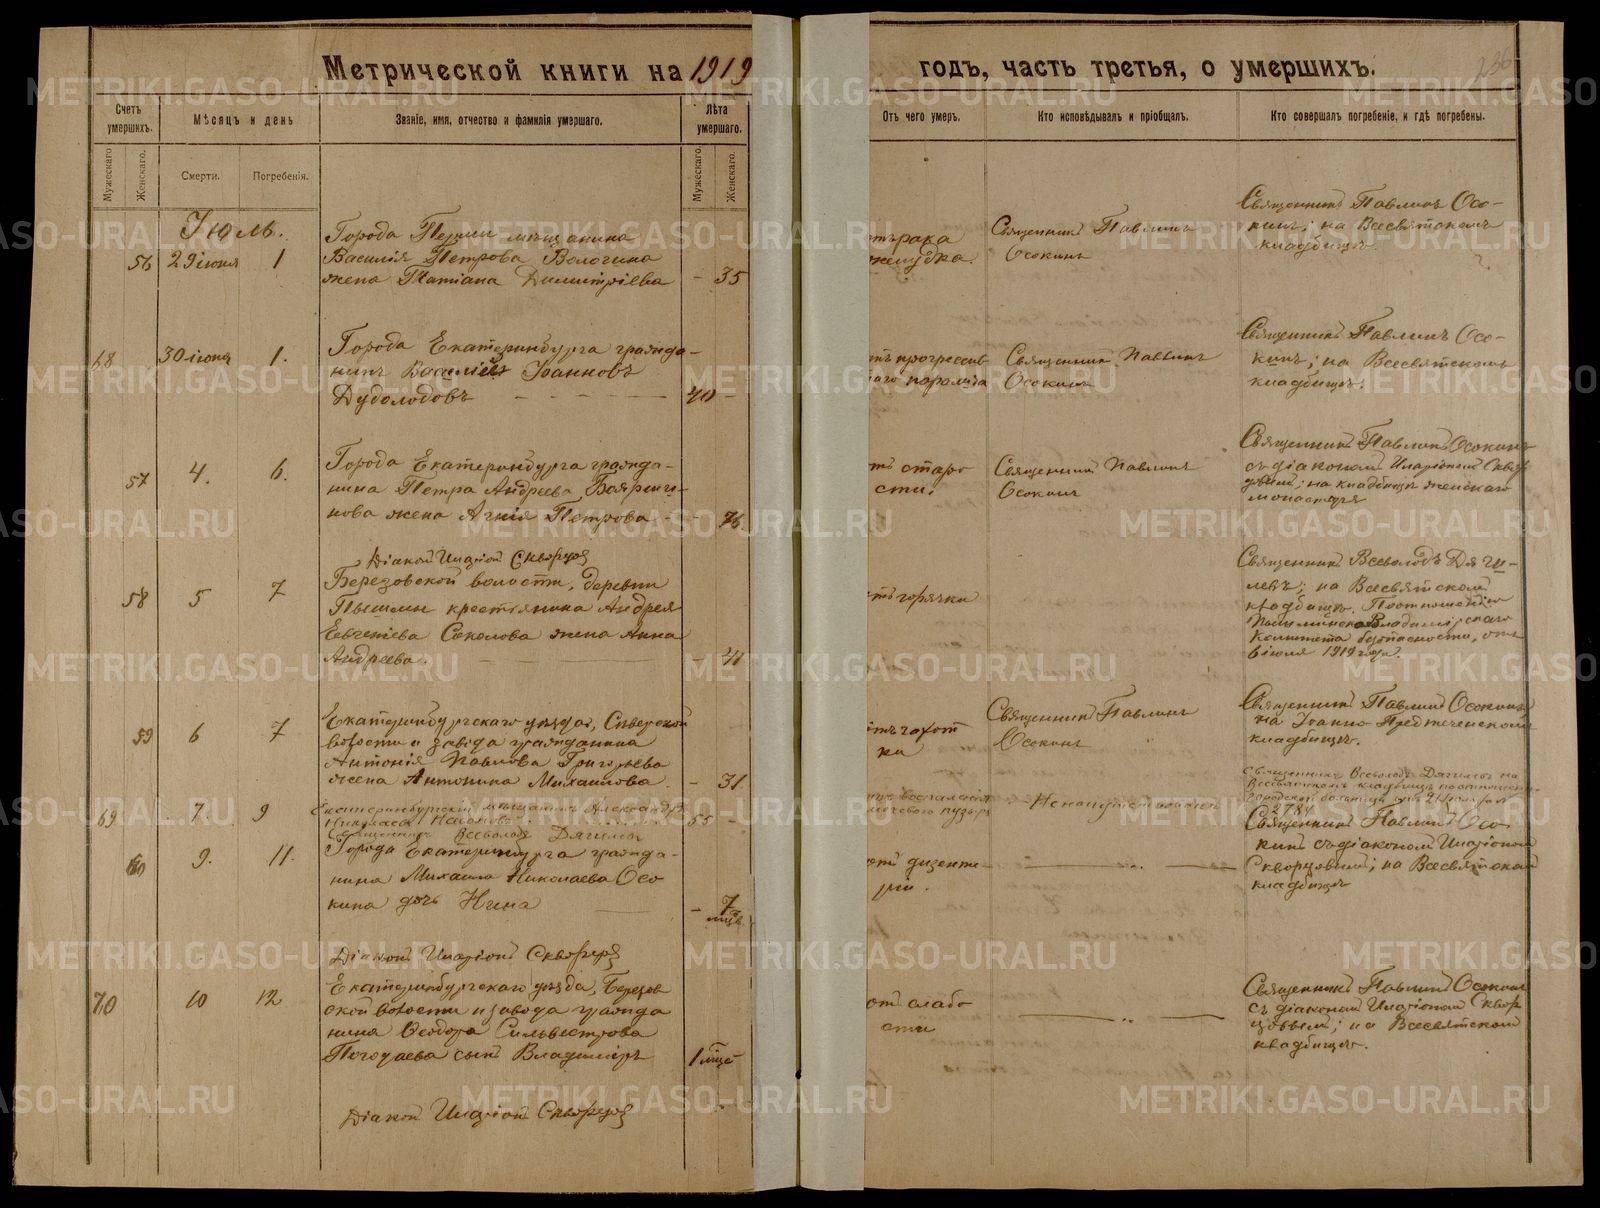 Метрической книги на 1919 годъ, часть третья, о умершихъ.
236
Счетъ умершихъ.
Мѣсяцъ и день
Званіе, имя, отчество и фамилія умершаго.
Лѣта умершаго.
Отъ чего умеръ.
Кто исповѣдывалъ и пріобщалъ.
Кто совершалъ погребеніе, и гдѣ погребены.
Мужескаго
Женскаго.
Смерти.
Погребенія.
Мужескаго.
Женскаго.
Іюль.
56 29 іюня 1
Города Перми мѣщанина
Василія Петрова Вологина
жена Татіана Димитріева
- 35
отъ рака
желудка.
Священникъ Павлинъ
Осокинъ
Священникъ Павлинъ Осо-
кинъ; на Всесвятскомъ
кладбищѣ.
68 30 іюня 1.
Города Екатеринбурга гражда-
нинъ Василій Іоанновъ
40 -
Священникъ Павлинъ
Осокинъ
Священникъ Павлинъ Осо-
кинъ; на Всесвятскомъ
кладбищѣ.
57 4. 6.
Города Екатеринбурга гражда-
нина Петра Андреева Боярши-
нова жена Агнія Петрова
- 76.
отъ старо
сти.
Священникъ Павлинъ
Осокинъ
Священникъ Павлинъ Осокинъ
съ діакономъ Иларіономъ
на кладбищѣ женскаго
монастыря
Діаконъ Иларіонъ Скворцовъ
58 5 7
Березовской волости, деревни
Пышмы крестьянина Андрея
Евгеніева Соколова жена Анна
Андреева.
41
отъ горячки
Священникъ Всеволодъ Дяги-
левъ; на Всесвятскомъ
кладбищѣ. По отношенію
комитета безопасности, отъ
6 іюля 1919 года.
59 6 7
Екатеринбургскаго уѣзда, Сысертской
волости и завода гражданина
Антонія Павлова Григорьева
жена Антонина Михаилова.
- 31
отъ чахот
ки
Священникъ Павлинъ
Осокинъ
Священникъ Павлинъ Осокинъ
на Іоанно-Предтеченскомъ
кладбищѣ.
69 7. 9
Екатеринбургскій мѣщанинъ Александръ
Священникъ Всеволодъ Дягилевъ
55 -
Священникъ Всеволодъ Дягилевъ на
Всесвятскомъ кладбищѣ по отношенію
60 9. 11.
Города Екатеринбурга гражда-
нина Михаила Николаева Осо
кина дочь Нина
- 7 мѣсяц.
отъ дизенте-
ріи.
Священникъ Павлинъ Осо
кинъ съ діакономъ Иларіономъ
Скворцовымъ; на Всесвятскомъ
кладбищѣ
Діаконъ Иларіонъ Скворцовъ
70 10 12
Екатеринбургскаго уѣзда, Березов
ской волости и завода гражда
нина Ѳеодора Сильвестрова
Погодаева сынъ Владиміръ
1 мѣсяц
отъ слабо
сти
Священникъ Павлинъ Осокинъ
съ діакономъ Иларіономъ Сквор
цовымъ; на Всесвятскомъ
кладбищѣ.
Діаконъ Иларіонъ Скворцовъ
METRIKI.GASO-URAL.RU